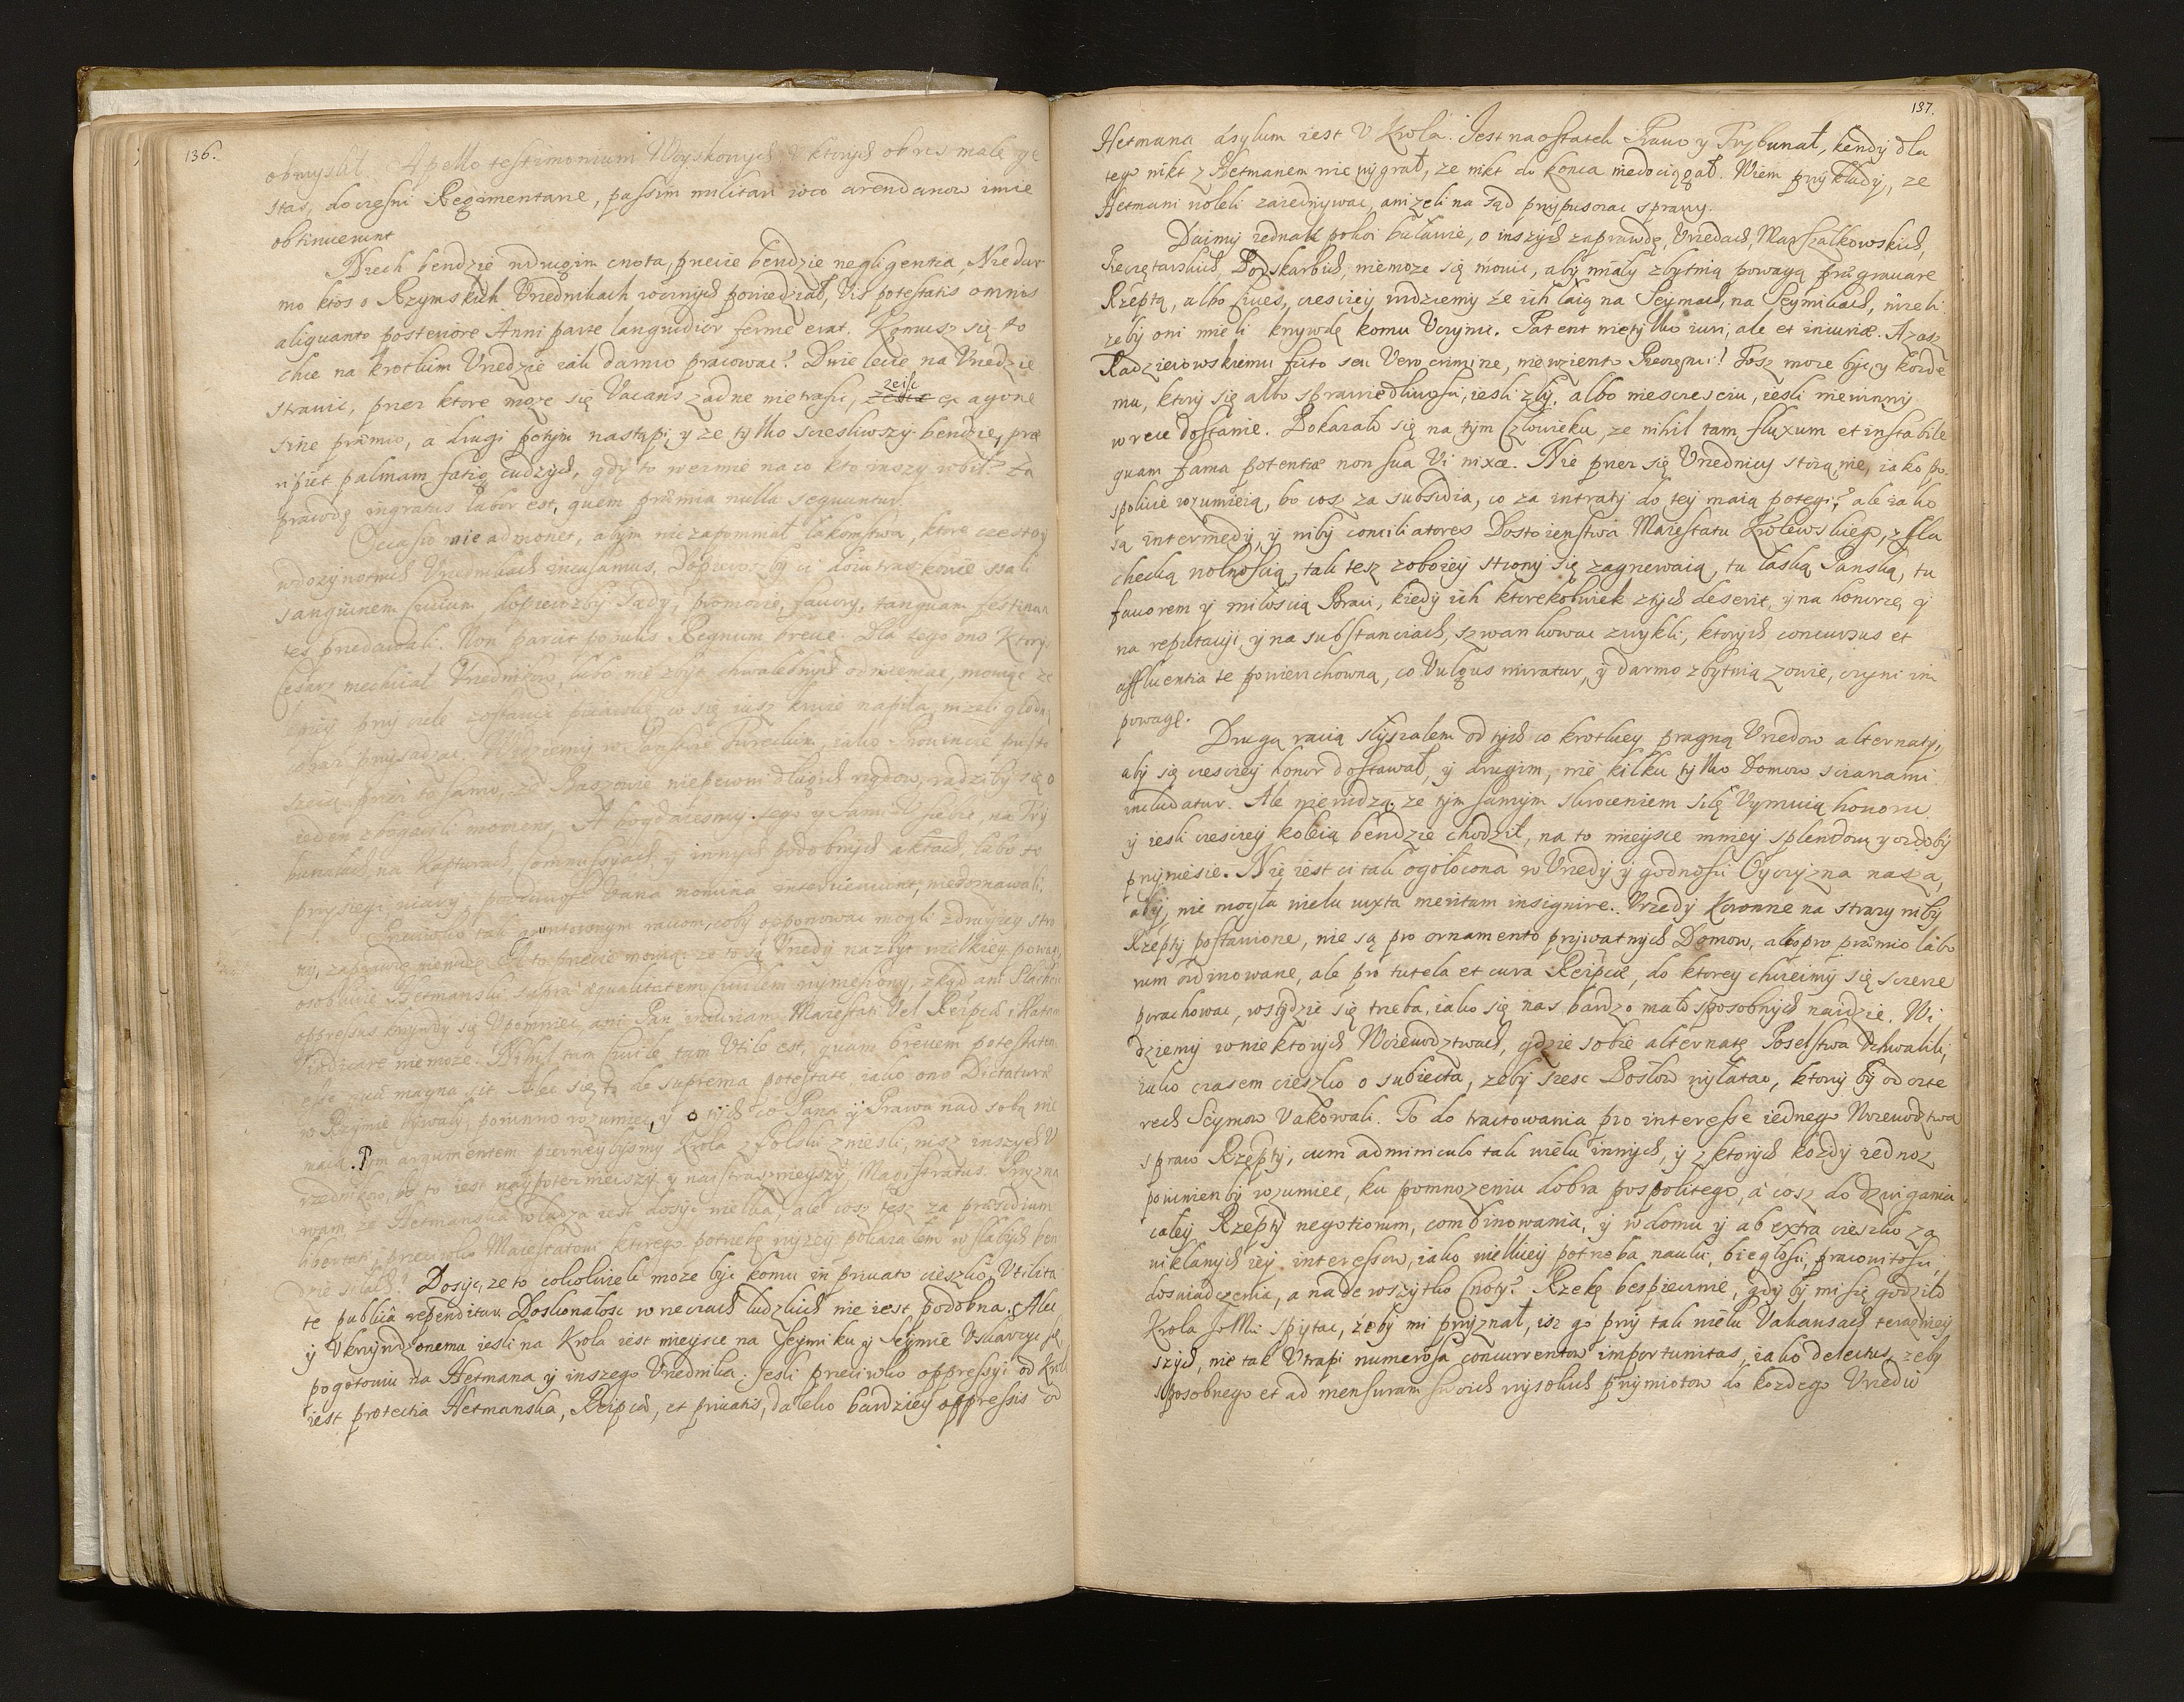 136.
obmyslił. Apello testimonium Woyskowych u ktorych obres male ge
stas, docześni Regimentarze, passim militari ioco arendarzow imie
obtinuerunt
Niech bendzie w drugim cnota, przecie bendzie negligentia, Nie dar
mo ktos o Rzymskich Vrzednikach rocznych powiedział, Vis potestatis omnis
aliquanto posteriore Anni parte languidior ferme erat. Komusz się to
chce na krotkim Vrzedzie iak darmo pracować? Dwie lecie na Vrzedzie
strawic, przez ktore może się Vacans zadne nietrafić, zeiść ex agone
sine præmio, a drugi potym nastąpi, y ze tylko sczesliwszy bendzie, præ
ripiet palmam fatig cudzych, gdy to wezmie na co kto inszy robił? Za
prawdę ingratus labor est, quem præmia nulla sequuntur.
Occasio mie admonet, abym nie zapomniał łakomstwa, ktore czesto y
w dozywotnich Vrzednikach incusamus. Dopierosz by ci dwu
sanguinem succum, dopierozby sądy, promocie, favory, tanquam festinan
tes przedawali. Non parcit populis Regnum breve. Dla tego ono Ktory
Cesarz niechciał Vrzednikow, lubo nie zbyt chwalebnych odmieniac, mowiąc ze
przy ciele zostawic piiawkę co się iusz krwie napiła, nizeli głodną
przysadzac. Widziemy w Panstwie Tureckim, iako Prowincie pusto
szeią, przez to samo, ze Baszowie niepewni długich rządow, radziby się o
ieden zbogacili moment, A bogdaiesmy tego y sami u siebie, na Try
bunałach, na Kapturach, Commissyach, y innych podobnych aktach, lubo to
przysiegi, wiary, vana nomina intervenerunt, niedoznawali.
Przeciwko tak gruntownym raciom, coby opponowac mogli z drugiey stro
ny, zaprawdę niewiem. Ale to przecie mowią: ze to są Vrzedy nazbyt wielkiey powagi,
osobliwie Hetmanski supra æqualitatem Civilem wyniesiony, zkąd ani Slachcic
oppressus krzywdy się Vpomniec, ani Pan iniuriam Maiestati Vel Reipcæ illatam
vindicare niemoze. Nihil tam Civile tam Vtile est, quam brevem potestatem
esse quæ magna sit. Ale się to de suprema potestate, iako ono Dictatura
w Rzymie bywała, powinno rozumiec, y o tych co Pana y Prawa nad sobą nie
maią. Tym argumentem pierweybysmy Krola z Polski zniesli, nisz inszych V
rzednikow, bo to iest naypotezniejszy y naistraszniejszy Magistratus. Przyzna
wam ze Hetmanska władza iest dosyć wielka, ale cosz tesz za præsidium
libertati, przeciwko Maiestatowi ktorego potrzebę wyzey pokazałem w słabych ben
dzie siłach? Dosyć, ze to cokolwiek może być komu in privato cieszko, Vtilita
te publica rependitur. Doskonałosc w rzeczach ludzkich nie iest podobna. Alec
y Vkrzywdzonemu iesli na Krola iest mieysce na Seymiku y Seymie Vskarzyc się,
pogotowiu na Hetmana y inszego Vrzednika. Jesli przeciwko oppressyi od Krola
iest protectia Hetmanska, Reipcæ, et privatis, daleko bardziey oppressis od
137.
Hetmana asylum iest V Krola. Jest na ostatek Prawo y Trybunał, kendy dla
tego nikt z Hetmanem nie wygrał, ze nikt do konca niedociągał. Wiem przykłady, ze
Hetmani woleli zaiednywac, anizeli na sąd przypuszczac sprawy.
Daimy iednak pokoi buławie, o inszych zaprawdę, Vrzedach, Marszałkowskich,
Pieczętarskich, Podskarbich, niemoze się mowic, aby miały zbytnią powagą prægravare
Rzeptą, albo Cives, czesciey widziemy ze ich łaią na Seymach, na Seymikach, nizeli
zeby oni mieli krzywdę komu Vczynic. Patent nietylko iuri, ale et iniuriæ. Azasz
Radzieiowskiemu ficto seu Vero crimine, niewzięto Pieczęci? Tosz moze byc, y kozde
mu, ktory się albo sprawiedliwosci, iesli zły, albo niesczesciu, iesli niewinny
w rece dostanie. Pokazało się na tym Człowieku, ze nihil tam fluxum et instabile
quam fama potentiæ non sua Vi nixæ. Nie przez się Vrzednicy stoią, nie, iako po
spolicie rozumieią, bo cosz za subsidia, co za intraty do tey maią potegi? ale iako
są intermedii, y niby conciliatores Dostoienstwa Maiestatu Krolewskiego, z Sla
checką wolnoscią, tak tesz z oboiey strony się zagrzewaią, tu łaską Panską, tu
favorem y miłoscią Braci, kiedy ich ktorekolwiek z tych deserit, y na honorze, y
na reputacyi, y na substanciach, szwankowac zwykli, ktorych concursus et
affluentia te powierzchowną, co Vulgus miratur, y darmo zbytnią zowie, czyni im
powagę.
Drugą racią słyszałem od tych co krotkiey pragną Vrzedow alternaty,
aby się czesciey honor dostawał, y drugim, nie kilku tylko Domow scianami
includatur. Ale niewidzą ze tym samym skroceniem siłę Vymuią honoru
y iesli czesciey koleią bendzie chodził, na to mieysce mniey splendoru y ozdoby
przyniesie. Nie iest ci tak ogołocona w Vrzedy y godnosci Oyczyzna nasza,
aby nie mogła wielu iuxta meritum insignire. Vrzedy Koronne na strazy niby
Rzepty postawione, nie są pro ornamento prywatnych Domow, albo pro præmio labo
rum ordinowane, ale pro tutela et cura Reipcæ, do ktorey chcieimy się szczerze
porachowac, wstydzic się trzeba, iako się nas bardzo mało sposobnych naidzie. Wi
dziemy w niektorych Woiewodztwach, gdzie sobie alternatę Poselstwa Vchwalili,
iako czasem cieszko o subiecta, zeby szesc Posłow wysłac, ktory by od czte
rech Seymow Vakowali. To do tractowania pro interesse iednego Woiewodztwa
spraw Rzepty, cum adminiculo tak wielu innych, y z ktorych kozdy iednoz
powinienby rozumiec, ku pomnozeniu dobra pospolitego, a cosz do dzwigania
całey Rzepty negotiorum, combinowania, y w domu y ab extra cieszko za
wikłanych iey interessow, iako wielkiey potrzeba nauki, biegłosci, pracowitosci,
doswiadczenia, a nadewszytko Cnoty? Rzekę bespiecznie, gdyby mi się godziło
Krola JoMci spytac, zeby mi przyznał, isz go przy tak wielu Vakansach teraznieј
szych, nie tak Vtrapi numerosa concurrentow importunitas, iako delectus, zeby
sposobnego et ad mensuram swoich wysokich przymiotow do kozdego Vrzedu